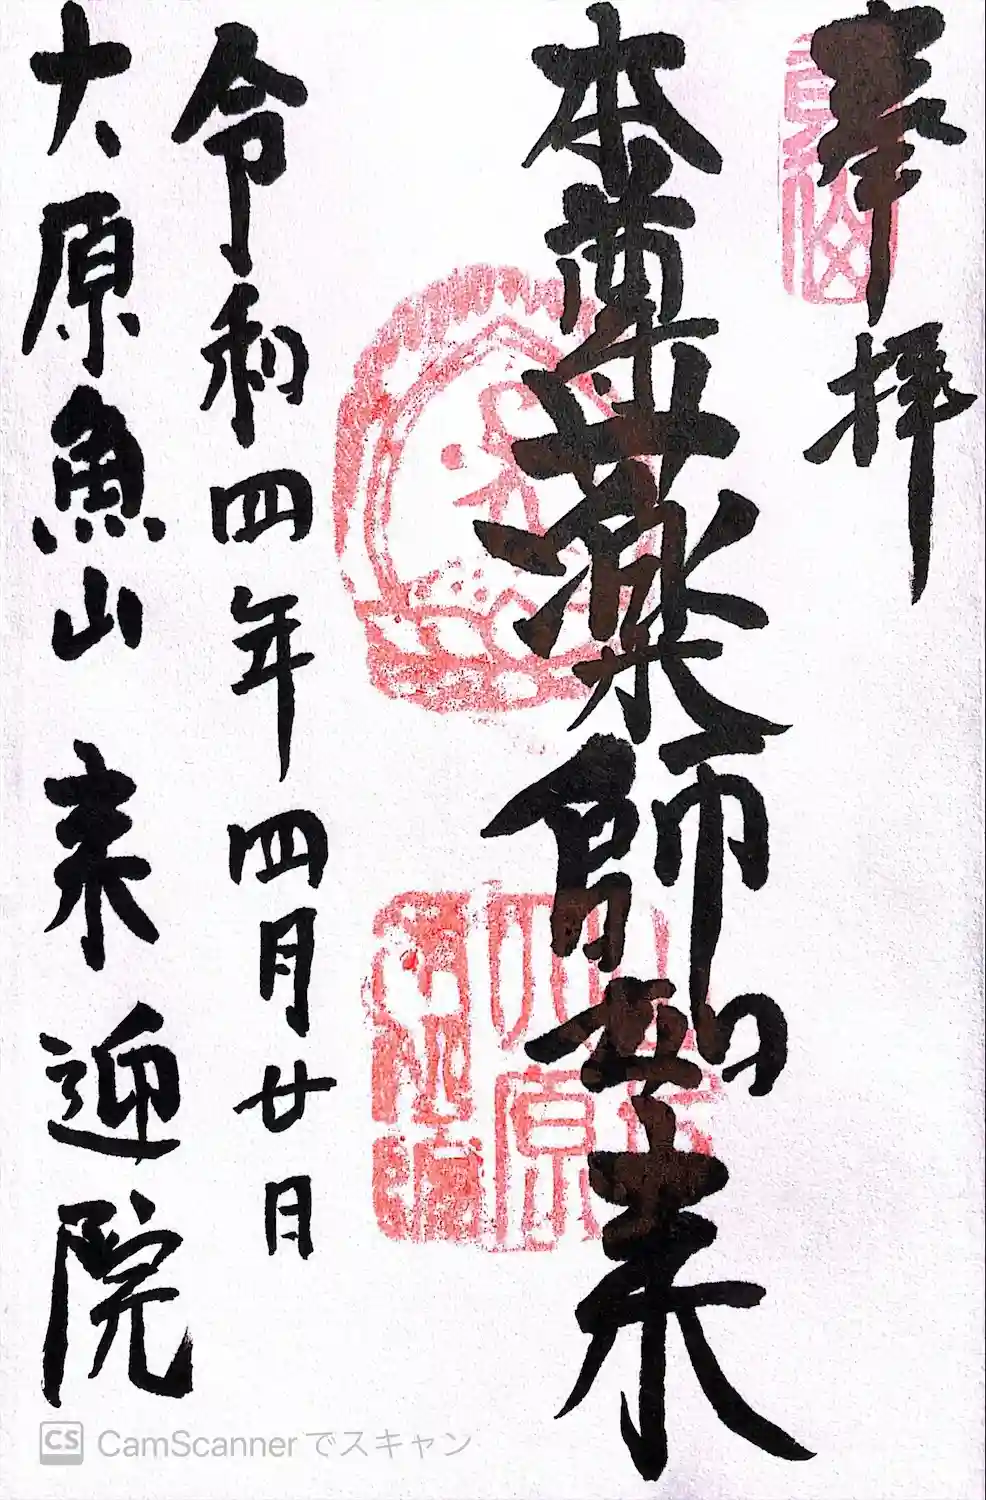 奉拝
本尊薬師如来
令和四年四月廿日
大原魚山 来迎院
CS CamScannerでスキャン